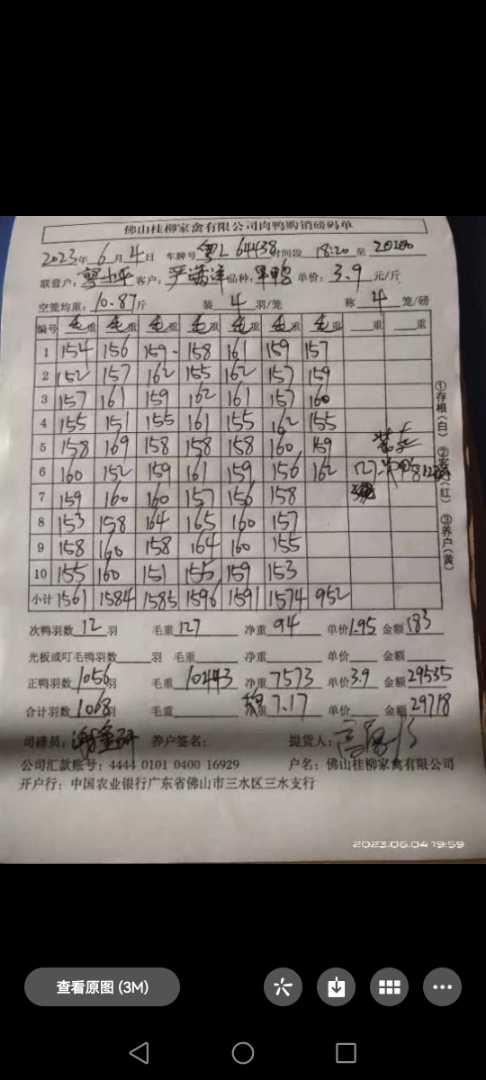 佛山桂柳家禽有限公司肉鸭购销磅码单
2023年6月4日 车牌号粤L64438时间段18:20至20:00
联营户: 客户: 品种: 单价:3.9元/斤
空笼均重:10.87斤 装4羽/笼 称4笼/磅
编号 毛重 毛重 毛重 毛重 毛重 毛重 毛重 重 重
1 154 156 159 158 161 159 157
2 152 157 162 155 162 157 159
3 157 161 159 162 161 157 160
4 155 151 155 161 155 162 155
5 158 169 158 158 158 160 159
6 160 152 159 161 159 156 162 127
7 159 160 160 157 156 158
8 153 158 164 165 160 157
9 158 160 158 164 160 155
10 155 160 151 155 159 153
小计 1561 1584 1585 1596 1591 1574 952
次鸭羽数12羽 毛重127 净重94 单价1.95 金额183
光板或叮毛鸭羽数 羽 毛重 净重 单价 金额
正鸭羽数1056羽 毛重10443 净重7573 单价3.9 金额29535
合计羽数1068羽 毛重 重7.17 单价 金额29718
司磅员: 养户签名: 提货人:
公司汇款账号:4444 0101 0400 16929 户名:佛山桂柳家禽有限公司
开户行:中国农业银行广东省佛山市三水区三水支行
①存根(白) ②客户(红) ③养户(黄)
2023.06.04 19:59
查看原图 (3M)